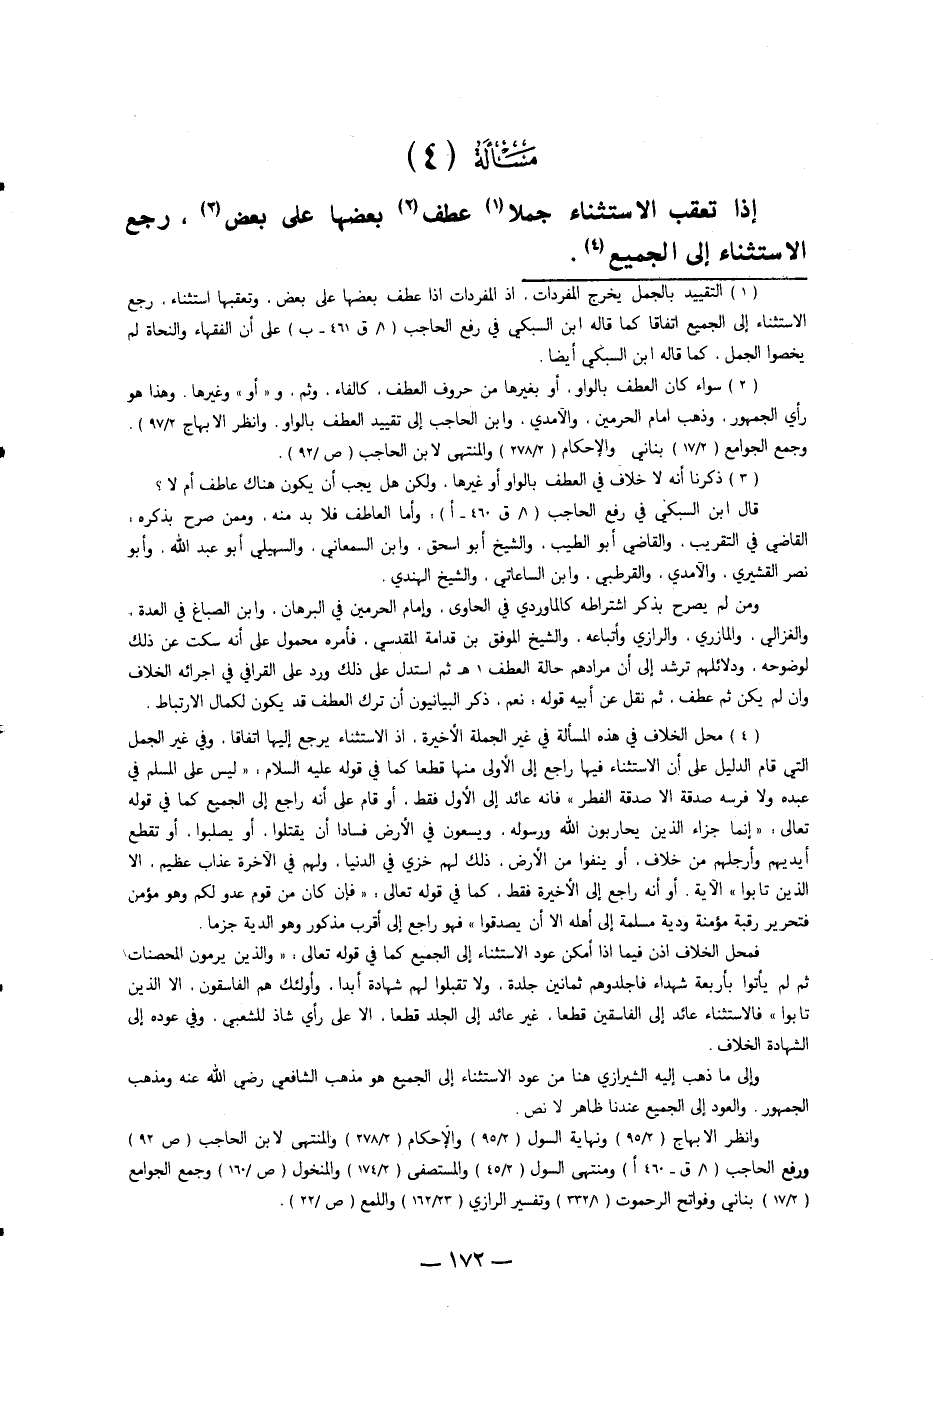 مسألة ( ٤ )
إذا تعقب الاستثناء جملا (١) عطف (٢) بعضها على بعض (٣) ، رجع
الاستثناء إلى الجميع (٤) .
( ١ ) التقييد بالجمل يخرج المفردات ، اذ المفردات اذا عطف بعضها على بعض ، وتعقبها استثناء ، رجع
الاستثناء إلى الجميع اتفاقا كما قاله ابن السبكي في رفع الحاجب ( ١/ ق ٤٦١ ـ ب ) على أن الفقهاء والنحاة لم
يخصوا الجمل ، كما قاله ابن السبكي أيضا .
( ٢ ) سواء كان العطف بالواو ، أو بغيرها من حروف العطف ، كالفاء ، وثم ، و « أو » وغيرها ، وهذا هو
رأي الجمهور ، وذهب امام الحرمين ، والآمدي ، وابن الحاجب إلى تقييد العطف بالواو . وانظر الابهاج ٩٧/٢ ) .
وجمع الجوامع ( ١٧/٢ ) بناني والإحكام ( ٢٧٨/٢ ) والمنتهى لابن الحاجب ( ص /٩٢ ) .
( ٣ ) ذكرنا أنه لا خلاف في العطف بالواو أو غيرها ، ولكن هل يجب أن يكون هناك عاطف أم لا ؟
قال ابن السبكي في رفع الحاجب ( ١/ ق ٤٦٠ ـ أ ) : وأما العاطف فلا بد منه ، وممن صرح بذكره :
القاضي في التقريب ، والقاضي أبو الطيب ، والشيخ أبو اسحق ، وابن السمعاني ، والسهيلي أبو عبد الله ، وأبو
نصر القشيري ، والآمدي ، والقرطبي ، وابن الساعاتي ، والشيخ الهندي .
ومن لم يصرح بذكر اشتراطه كالماوردي في الحاوى ، وإمام الحرمين في البرهان ، وابن الصباغ في العدة ،
والغزالي ، والمازري ، والرازي وأتباعه ، والشيخ الموفق بن قدامة المقدسي ، فأمره محمول على أنه سكت عن ذلك
لوضوحه ، ودلائلهم ترشد إلى أن مرادهم حالة العطف ١ هـ ثم استدل على ذلك ورد على القرافي في اجرائه الخلاف
وان لم يكن ثم عطف ، ثم نقل عن أبيه قوله : نعم ، ذكر البيانيون أن ترك العطف قد يكون لكمال الارتباط .
( ٤ ) محل الخلاف في هذه المسألة في غير الجملة الأخيرة ، اذ الاستثناء يرجع إليها اتفاقا ، وفي غير الجمل
التي قام الدليل على أن الاستثناء فيها راجع إلى الأولى منها قطعا كما في قوله عليه السلام : « ليس على المسلم في
عبده ولا فرسه صدقة الا صدقة الفطر » فانه عائد إلى الأول فقط ، أو قام على أنه راجع إلى الجميع كما في قوله
تعالى : « إنما جزاء الذين يحاربون الله ورسوله ، ويسعون في الأرض فسادا أن يقتلوا ، أو يصلبوا ، أو تقطع
أيديهم وأرجلهم من خلاف ، أو ينفوا من الأرض ، ذلك لهم خزي في الدنيا ، ولهم في الآخرة عذاب عظيم ، الا
الذين تابوا » الآية . أو أنه راجع إلى الأخيرة فقط ، كما في قوله تعالى : « فإن كان من قوم عدو لكم وهو مؤمن
فتحرير رقبة مؤمنة ودية مسلمة إلى أهله الا أن يصدقوا » فهو راجع إلى أقرب مذكور وهو الدية جزما .
فمحل الخلاف اذن فيما اذا أمكن عود الاستثناء إلى الجميع كما في قوله تعالى : « والذين يرمون المحصنات
ثم لم يأتوا بأربعة شهداء فاجلدوهم ثمانين جلدة ، ولا تقبلوا لهم شهادة أبدا ، وأولئك هم الفاسقون ، الا الذين
تابوا » فالاستثناء عائد إلى الفاسقين قطعا ، غير عائد إلى الجلد قطعا ، الا على رأي شاذ للشعبي ، وفي عوده إلى
الشهادة الخلاف .
وإلى ما ذهب إليه الشيرازي هنا من عود الاستثناء إلى الجميع هو مذهب الشافعي رضي الله عنه ومذهب
الجمهور ، والعود إلى الجميع عندنا ظاهر لا نص .
وانظر الابهاج ( ٩٥/٢ ) ونهاية السول ( ٩٥/٢ ) والإحكام ( ٢٧٨/٢ ) والمنتهى لابن الحاجب ( ص ٩٢ )
ورفع الحاجب ( ١/ ق ـ ٤٦٠ أ ) ومنتهى السول ( ٤٥/٢ ) والمستصفى ( ١٧٤/٢ ) والمنخول ( ص /١٦٠ ) وجمع الجوامع
( ١٧/٢ ) بناني وفواتح الرحموت ( ٣٣٢/١ ) وتفسير الرازي ( ١٦٢/٢٣ ) واللمع ( ص /٢٢ ) .
— ١٧٢ —